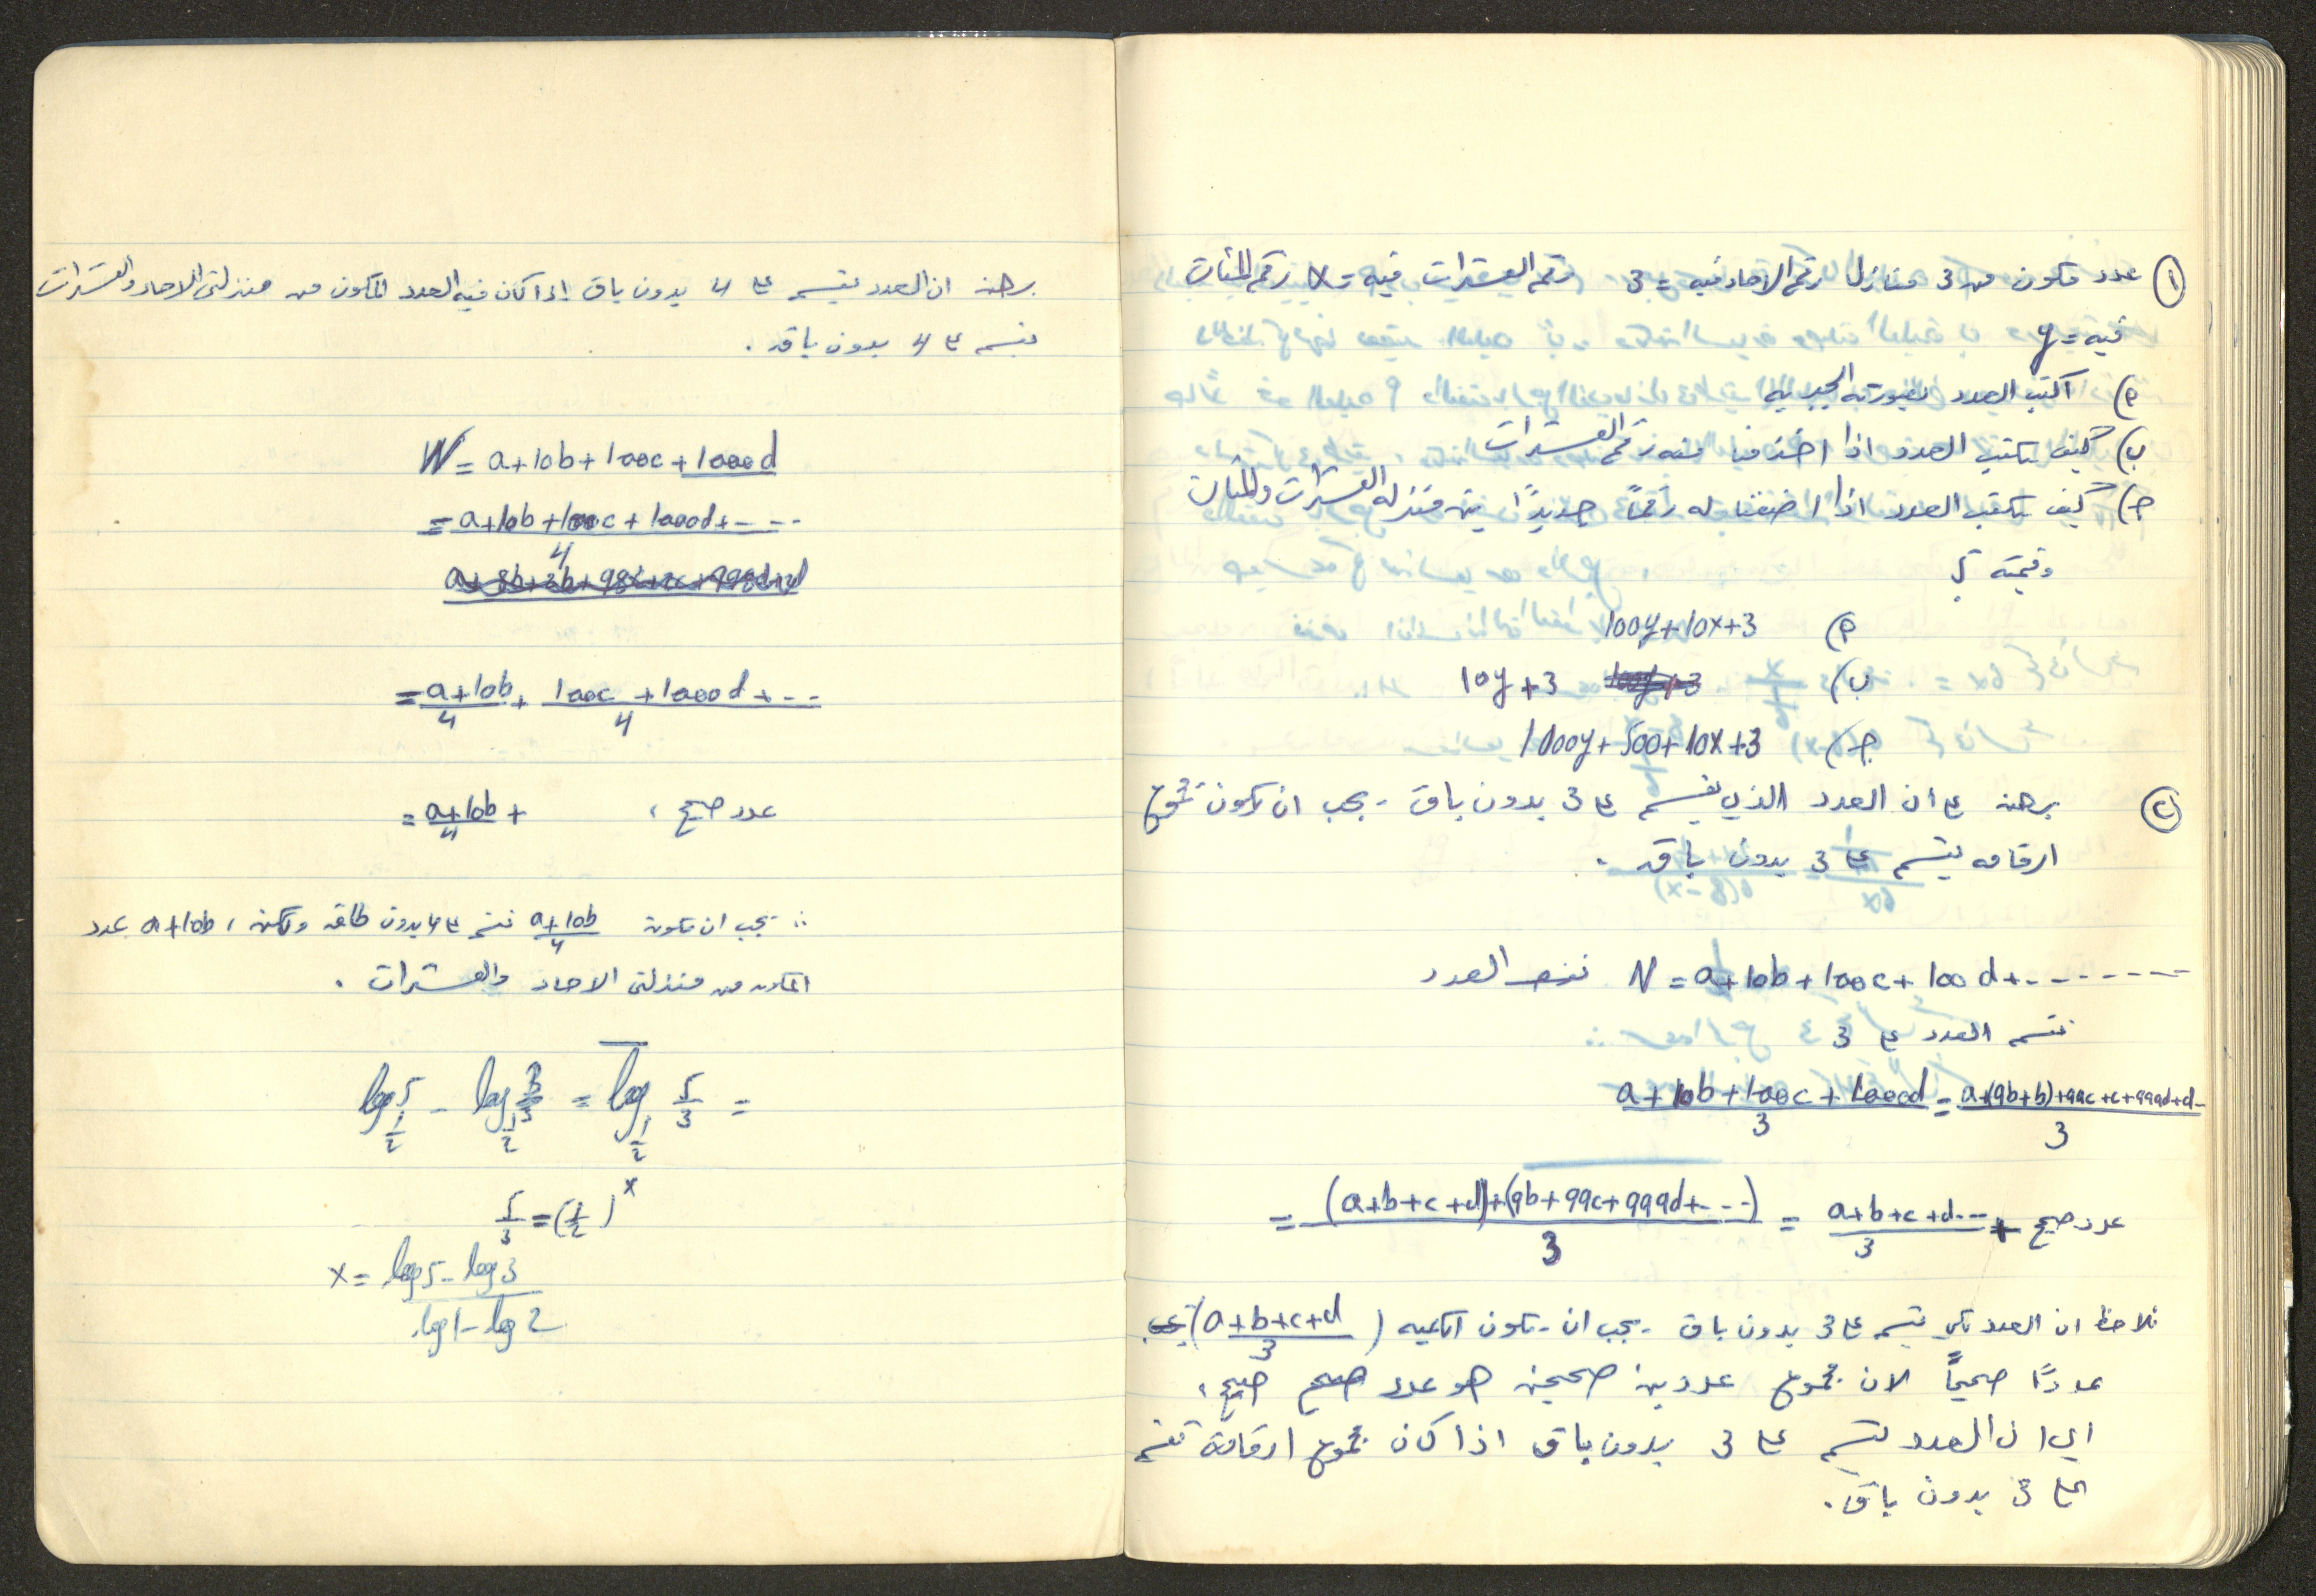 ١) عدد مكون من 3 منازل رقم الاحاد فيه = 3 رقم العشرات فيه = x رقم المئات
فيه = y
أ) اكتب العدد بصورته الجبريه
ب) كيف يكتب العدد اذا حذفنا منه رقم العشرات
ج) كيف يكتب العدد اذا اضفنا له رقماً جديداً بين منزله العشرات والمئات
وقيمته 5
أ) 100y+10x+3
ب) 10y+3
ج) 1000y+500+10x+3
٢) برهن على ان العدد الذي يقسم على 3 بدون باق يجب ان يكون مجموع
ارقامه يقسم على 3 بدون باق.
العدد N = a+10b+100c+100d+--------
نقسم العدد على 3
(a+10b+100c+1000d)/3 = (a+(9b+b)+99c+c+999d+d-)/3
= ((a+b+c+d)+(9b+99c+999d+---))/3 = (a+b+c+d---)/3 + عدد صحيح
نلاحظ ان العدد لكي يقسم على 3 بدون باق يجب ان تكون الكميه ((a+b+c+d)/3)
عددًا صحيحاً لان مجموع عددين صحيحين هو عدد صحيح،
اي ان العدد يقسم على 3 بدون باق اذا كان مجموع ارقامه تقسم
على 3 بدون باق.
برهن ان العدد يقسم على 4 بدون باق إذا كان فيه العدد المكون من منزلتي الاحاد والعشرات
يقسم على 4 بدون باق.
N = a+10b+100c+1000d
= (a+10b+100c+1000d+---)/4
= (a+10b)/4 + (100c+1000d+---)/4
= (a+10b)/4 + عدد صحيح،
∴ يجب ان تكون (a+10b)/4 تقسم على 4 بدون ولكن، a+10b عدد
المكون من منزلتي الاحاد والعشرات.
log_{1/2} 5 - log_{1/2} 3 = log_{1/2} 5/3 =
5/3 = (1/2)^x
x = (log 5 - log 3)/(log 1 - log 2)